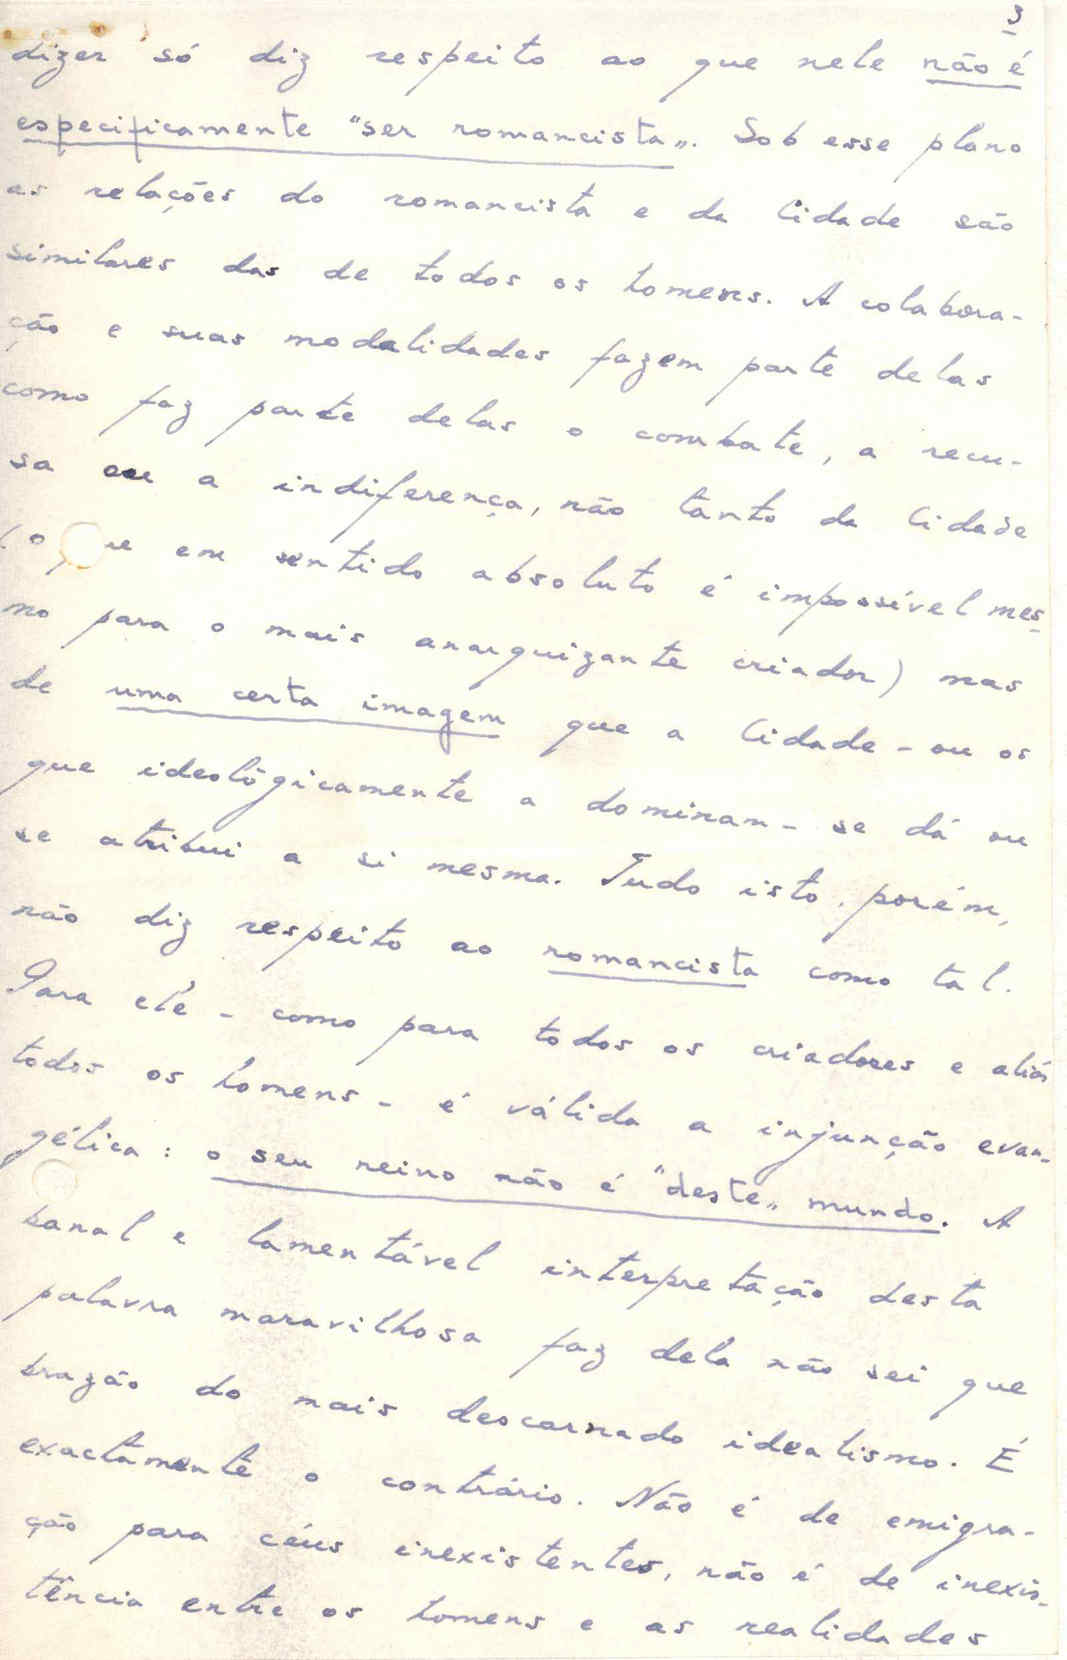 3
dizer só diz respeito ao que nele não é
especificamente "ser romancista". Sob esse plano
as relações do romancista e da Cidade são
similares das de todos os homens. A colabora-
ção e suas modalidades fazem parte delas
como faz parte delas o combate, a recu-
sa ou a indiferença, não tanto da Cidade
(o que em sentido absoluto é impossível mes-
mo para o mais anarquizante criador) mas
de uma certa imagem que a Cidade - ou os
que ideològicamente a dominam - se dá ou
se atribui a si mesma. Tudo isto, porém,
não diz respeito ao romancista como tal.
Para ele - como para todos os criadores e aliás
todos os homens - é válida a injunção evan-
gélica: o seu reino não é "deste" mundo. A
banal e lamentável interpretação desta
palavra maravilhosa faz dela não sei que
brazão do mais descarnado idealismo. É
exactamente o contrário. Não é de emigra-
ção para céus inexistentes, não é de inexis-
tência entre os homens e as realidades